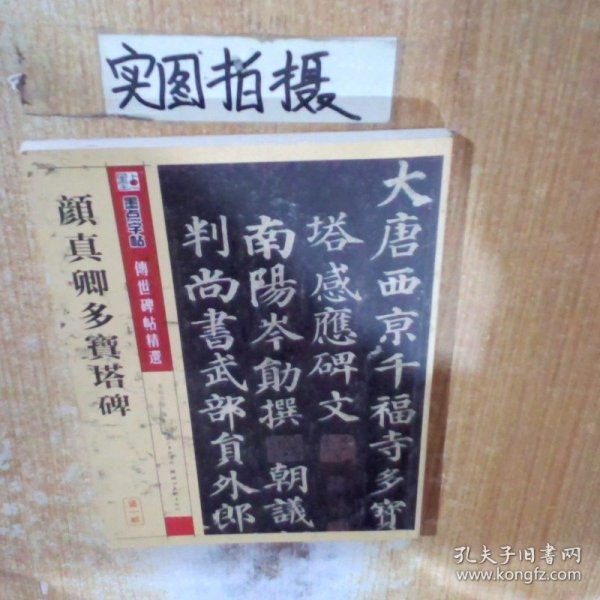 实图拍摄
墨点字帖
傳世碑帖精選
顔真卿多寶塔碑
第一輯
大唐西京千福寺多寶
塔感應碑文
南陽岑勛撰 朝議
判尚書武部員外郎
孔夫子旧书网
www.kongfz.com